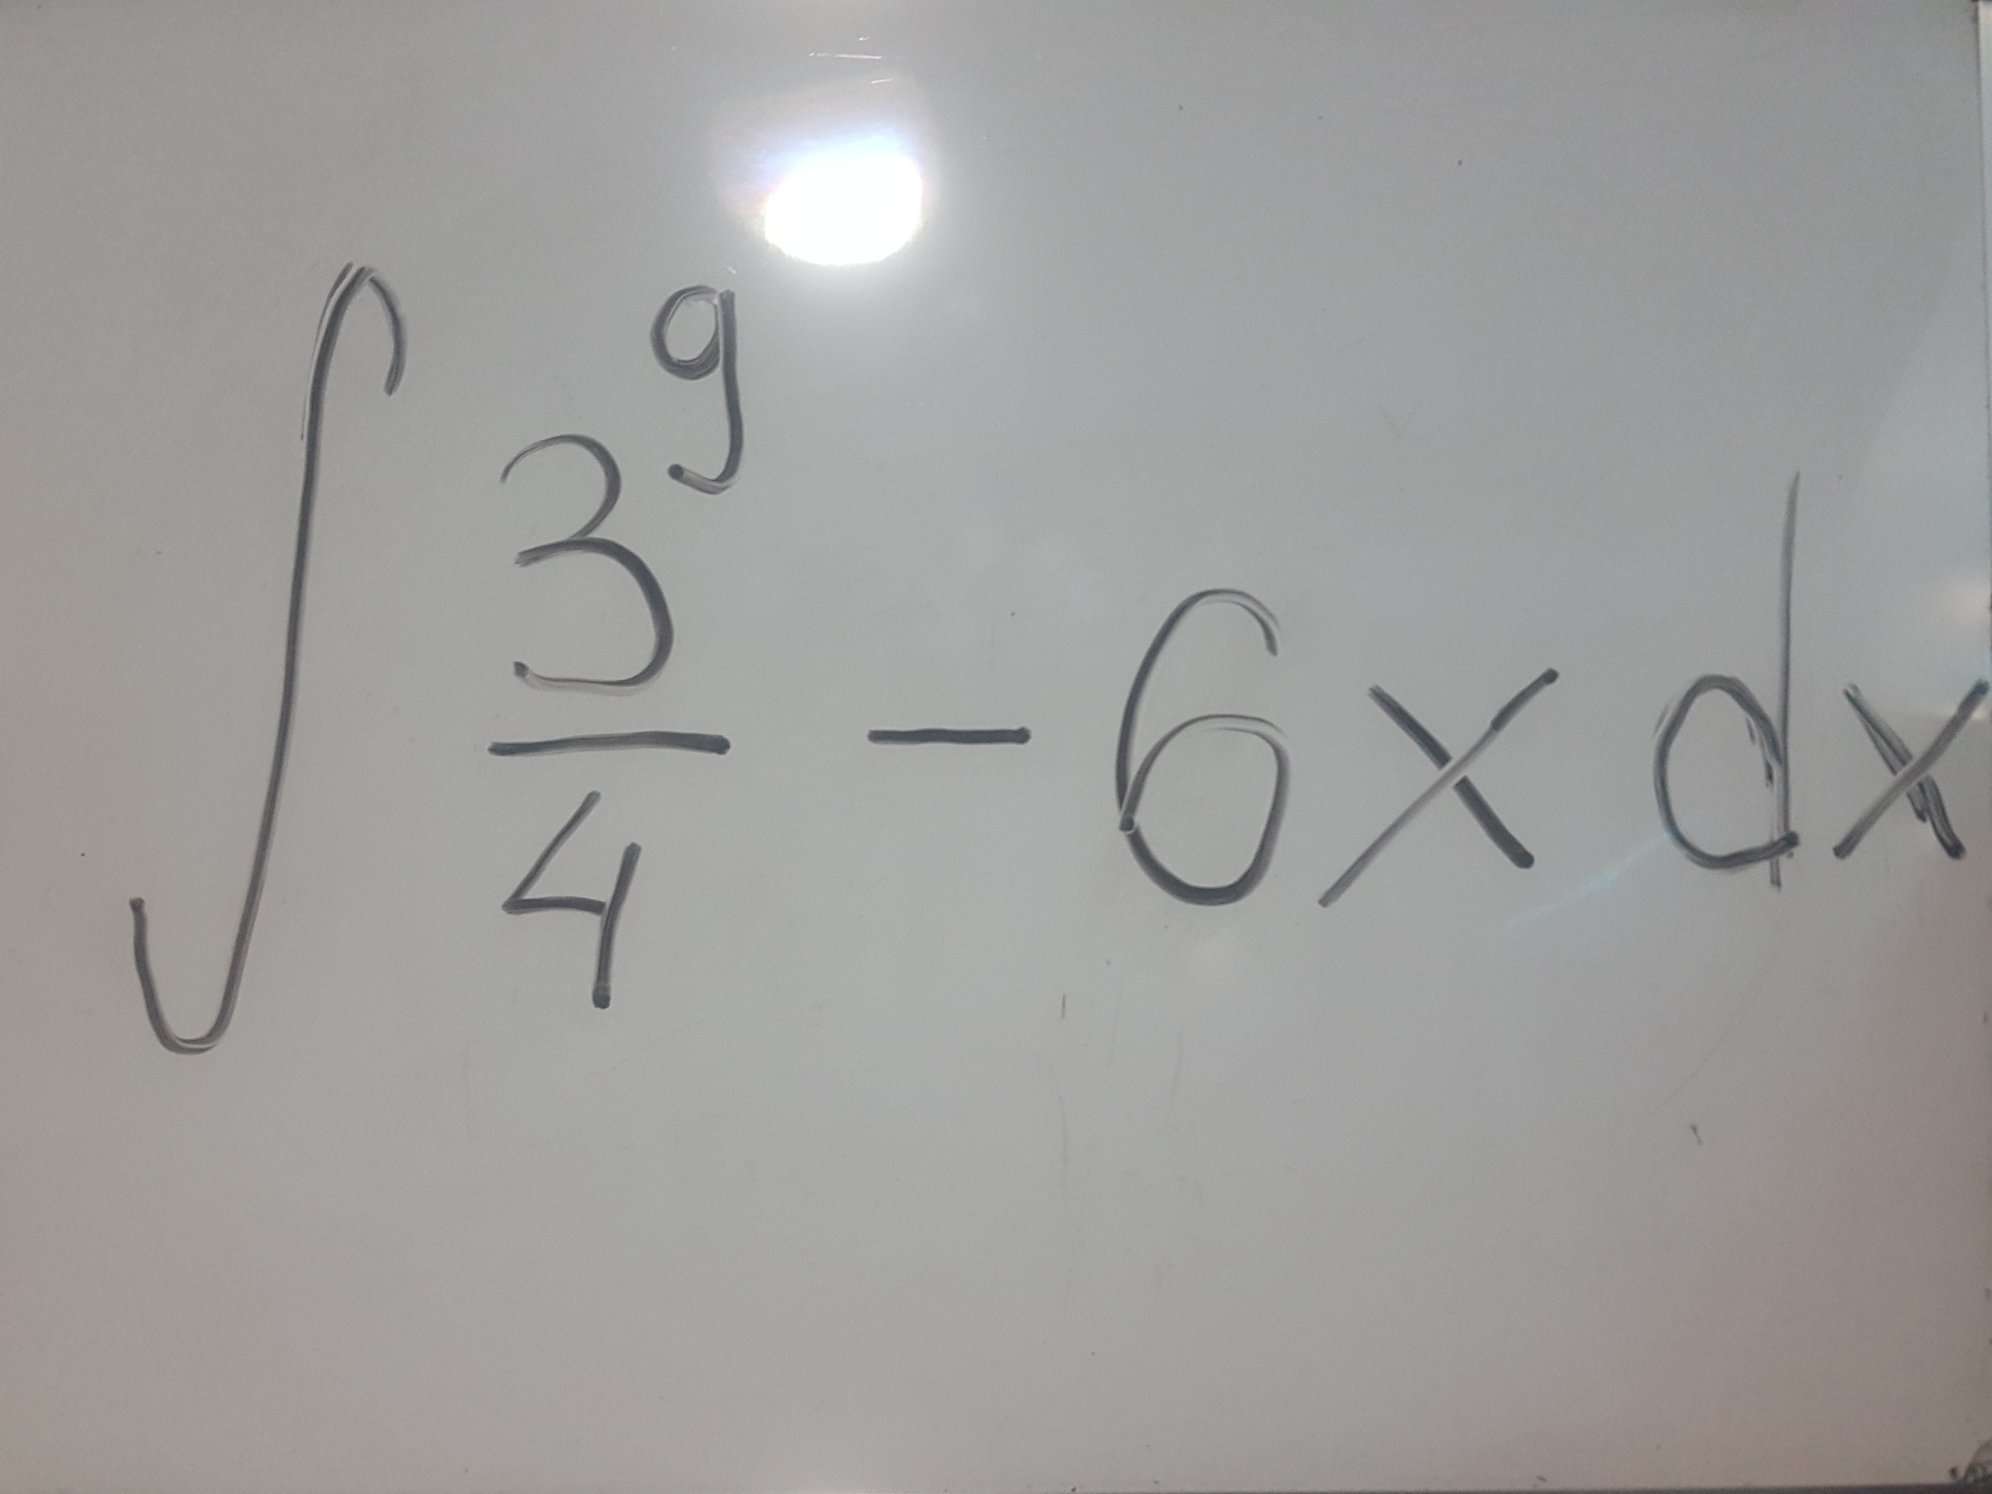 ∫ 3^9/4 - 6x dx